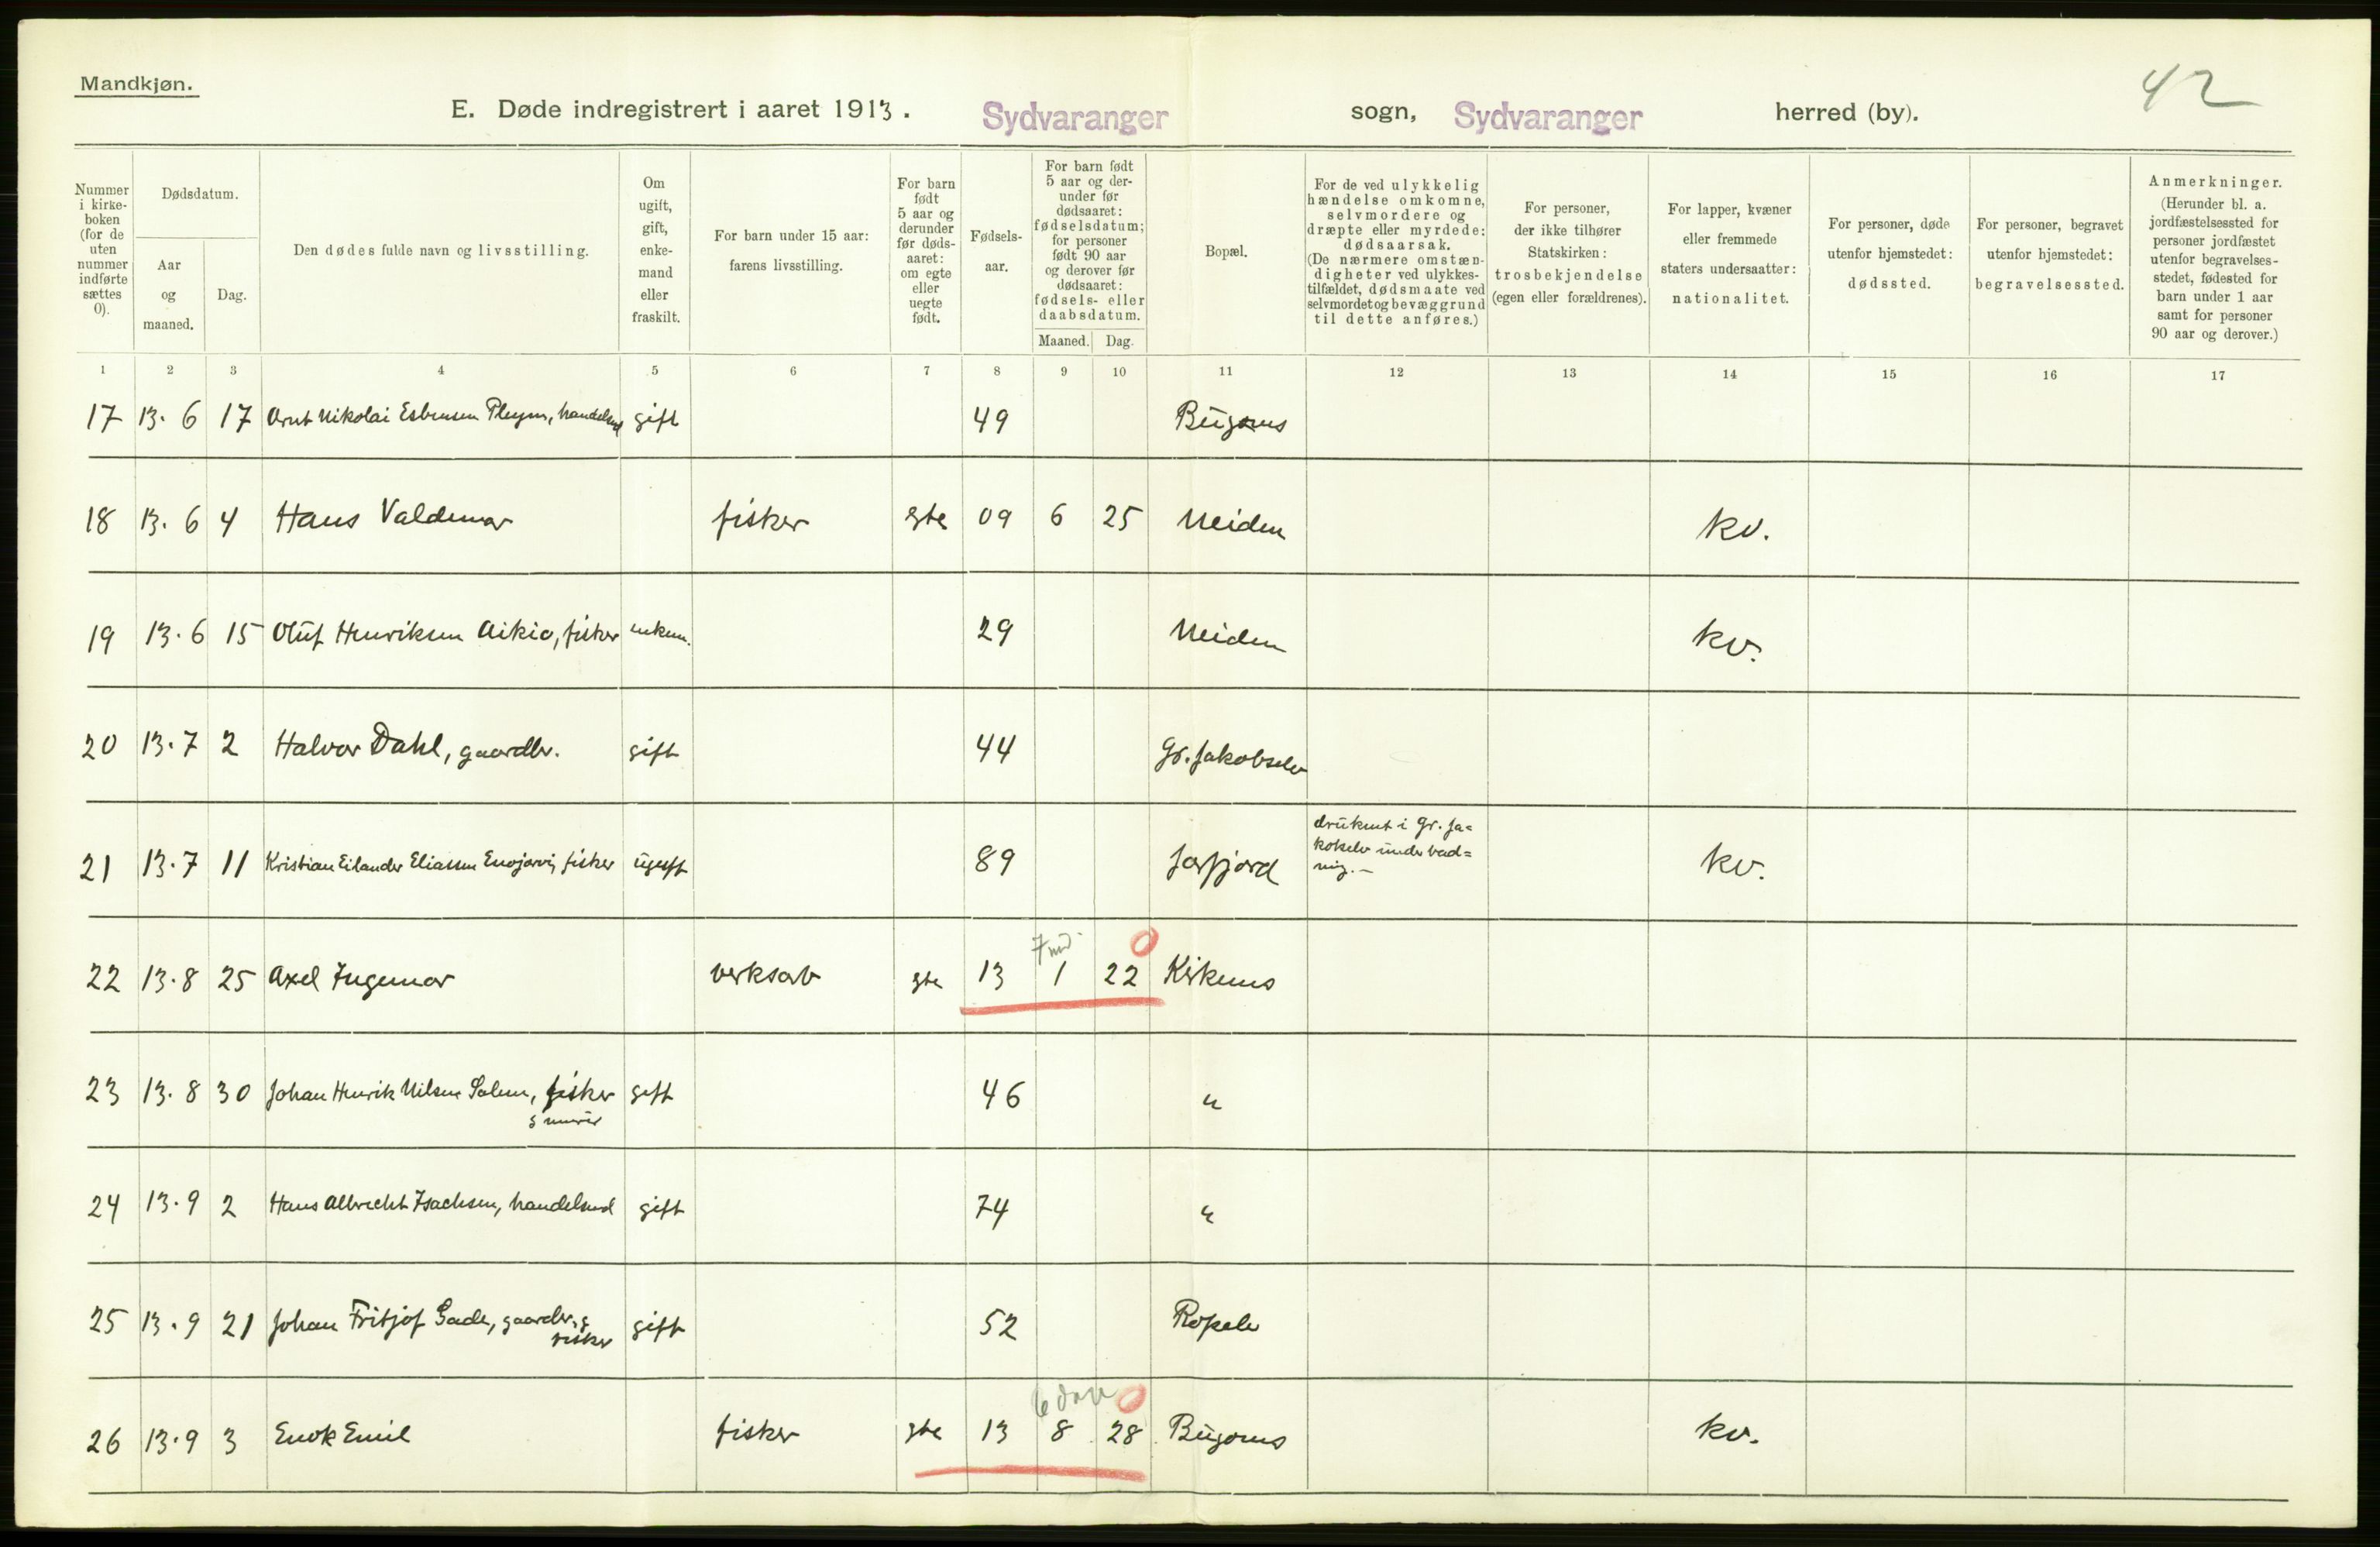 Mandkjøn.
42
E. Døde indregistrert i aaret 1913. Sydvaranger sogn, Sydvaranger herred (by).
Nummer i kirke- boken (for de uten nummer indførte sættes 0).
Dødsdatum.
Aar og maaned.
Dag.
Den dødes fulde navn og livsstilling.
Om ugift, gift, enke- mand eller fraskilt.
For barn under 15 aar: farens livsstilling.
For barn født 5 aar og derunder før døds- aaret: om egte eller uegte født.
Fødsels- aar.
For barn født 5 aar og der- under før dødsaaret: fødselsdatum; for personer født 90 aar og derover før dødsaaret: fødsels- eller daabsdatum.
Maaned. Dag.
Bopæl.
For de ved ulykkelig hændelse omkomne, selvmordere og dræpte eller myrdede: dødsaarsak. (De nærmere omstæn- digheter ved ulykkes- tilfældet, dødsmaate ved selvmordet og bevæggrund til dette anføres.)
For personer, der ikke tilhører Statskirken: trosbekjendelse (egen eller forældrenes).
For lapper, kvæner eller fremmede staters undersaatter: nationalitet.
For personer, døde utenfor hjemstedet: dødssted.
For personer, begravet utenfor hjemstedet: begravelsessted.
Anmerkninger. (Herunder bl. a. jordfæstelsessted for personer jordfæstet utenfor begravelses- stedet, fødested for barn under 1 aar samt for personer 90 aar og derover.)
1 2 3 4 5 6 7 8 9 10 11 12 13 14 15 16 17
17 13. 6 17 Arnt Nikolai Esbensen Pleym, handelsmd gift 49 Bugønes
18 13. 6 4 Hans Valdemar fisker egte 09 6 25 Neiden kv.
19 13. 6 15 Oluf Henriksen Aikio, fisker enkem. 29 Neiden kv.
20 13. 7 2 Halvor Dahl, gaardbr. gift 44 Gr. Jakobselv
21 13. 7 11 Kristian Eilander Eliassen Enojærvi, fisker ugift 89 Jarfjord kv.
druknet i Gr. Ja=
kobselv under bad=
ning. —
7 md.
0
22 13. 8 25 Axel Ingemar verksarb egte 13 1 22 Kirkenes
23 13. 8 30 Johan Henrik Nilsen Salem, fisker gift 46 "
24 13. 9 2 Hans Albrecht Isachsen, handelsmd gift 74 "
25 13. 9 21 Johan Fritjof Gade, gaardbr. g gift 52 Ropelv
fisker
6 dage 0
26 13. 9 3 Enok Emil fisker egte 13 8 28 Bugønes kv.